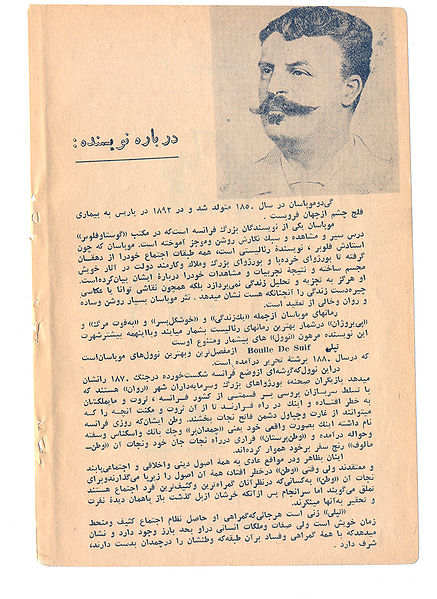 درباره نویسنده:
گی‌دوموپاسان در سال ۱۸۵۰ متولد شد و در ۱۸۹۳ در پاریس به بیماری
فلج چشم ازجهان فروبست .
موپاسان یکی از نویسندگان بزرگ فرانسه است‌که در مکتب «گوستاوفلوبر»
درس سیر و مشاهده و سبك نگارش روشن وموجز آموخته است. موپاسان که چون
استادش فلوبر ، نویسندهٔ رئالیستی‌است، همه طبقات اجتماع خودرا از دهقان
گرفته تا بورژوای خرده‌پا و بورژوای بزرگ وملاك وکارمند دولت در آثار خویش
مجسم ساخته و نتیجهٔ تجربیات و مشاهدات خودرا دربارهٔ ایشان بیان‌کرده‌است.
او هرگز به تجزیه و تحلیل زندگی نمی‌پردازد بلکه همچون نقاشی توانا یا عکاسی
چیره‌دست زندگی را آنچنانکه هست نشان میدهد . نثر موپاسان بسیار روشن وساده
و روان وخالی از تعقید است.
رمانهای موپاسان ازجمله «یك‌زندگی» و «خوشگل‌پسر» و «به‌قوت مرگ» و
«پی‌یروژان» درشمار بهترین رمانهای رئالیست بشمار میایند وبااینهمه بیشترشهرت
این نویسنده مرهون «نوول» های بیشمار ومتنوع اوست
تپلی Boulle De Suif ازمفصل‌ترین وبهترین نوول‌های موپاسان‌است
که درسال ۱۸۸۰ برشتهٔ تحریر درآمده است.
دراین نوول‌که‌گوشه‌ای ازوضع فرانسه شکست‌خورده درجنگ ۱۸۷۰ رانشان
میدهد بازیگران صحنه، بورژواهای بزرگ وسرمایه‌داران شهر «روان» هستند که
با تسلط سربازان پروسی بر قسمتی از کشور فرانسه ، ثروت و مایملکتان
به خطر افتاده و اینك در راه فرارند تا از آن ثروت و مکنت آنچه را که
میتوانند از غارت وچپاول دشمن فاتح نجات بخشند. وطن ایشان‌که روزی فرانسه
نام داشته اینك بصورت واقعی خود یعنی «چمدان‌پر» وچك بانك واسکناس وسفته
وحواله درآمده و «وطن‌پرستان» فراری درراه نجات جان خود ونجات آن «وطن‌ـ
مألوف» رنج سفر برخود هموار کرده‌اند.
اینان بظاهر ودر مواقع عادی به همهٔ اصول دینی واخلاقی و اجتماعی‌پابند
و معتقدند ولی وقتی «وطن» درخطر افتاد، همهٔ آن اصول را زیرپا می‌گذارندوبرای
نجات آن «وطن» به‌کسانی‌که درنظرآنان گمراه‌ترین وکثیف‌ترین فرد اجتماع هستند
تملق می‌گویند اما سرانجام پس ازآنکه خرشان ازپل گذشت باز باهمان دیدهٔ نفرت
و تحقیر به‌آنها مینگرند.
«تپلی» زنی است هرجائی‌که‌گمراهی او حاصل نظام اجتماع کثیف ومنحط
زمان خویش است ولی صفات وملکات انسانی دراو بحد بارز وجود دارد و نشان
میدهدکه با همهٔ گمراهی وفساد برآن طبقه‌که وطنشان را درچمدان بدست دارند،
شرف دارد .